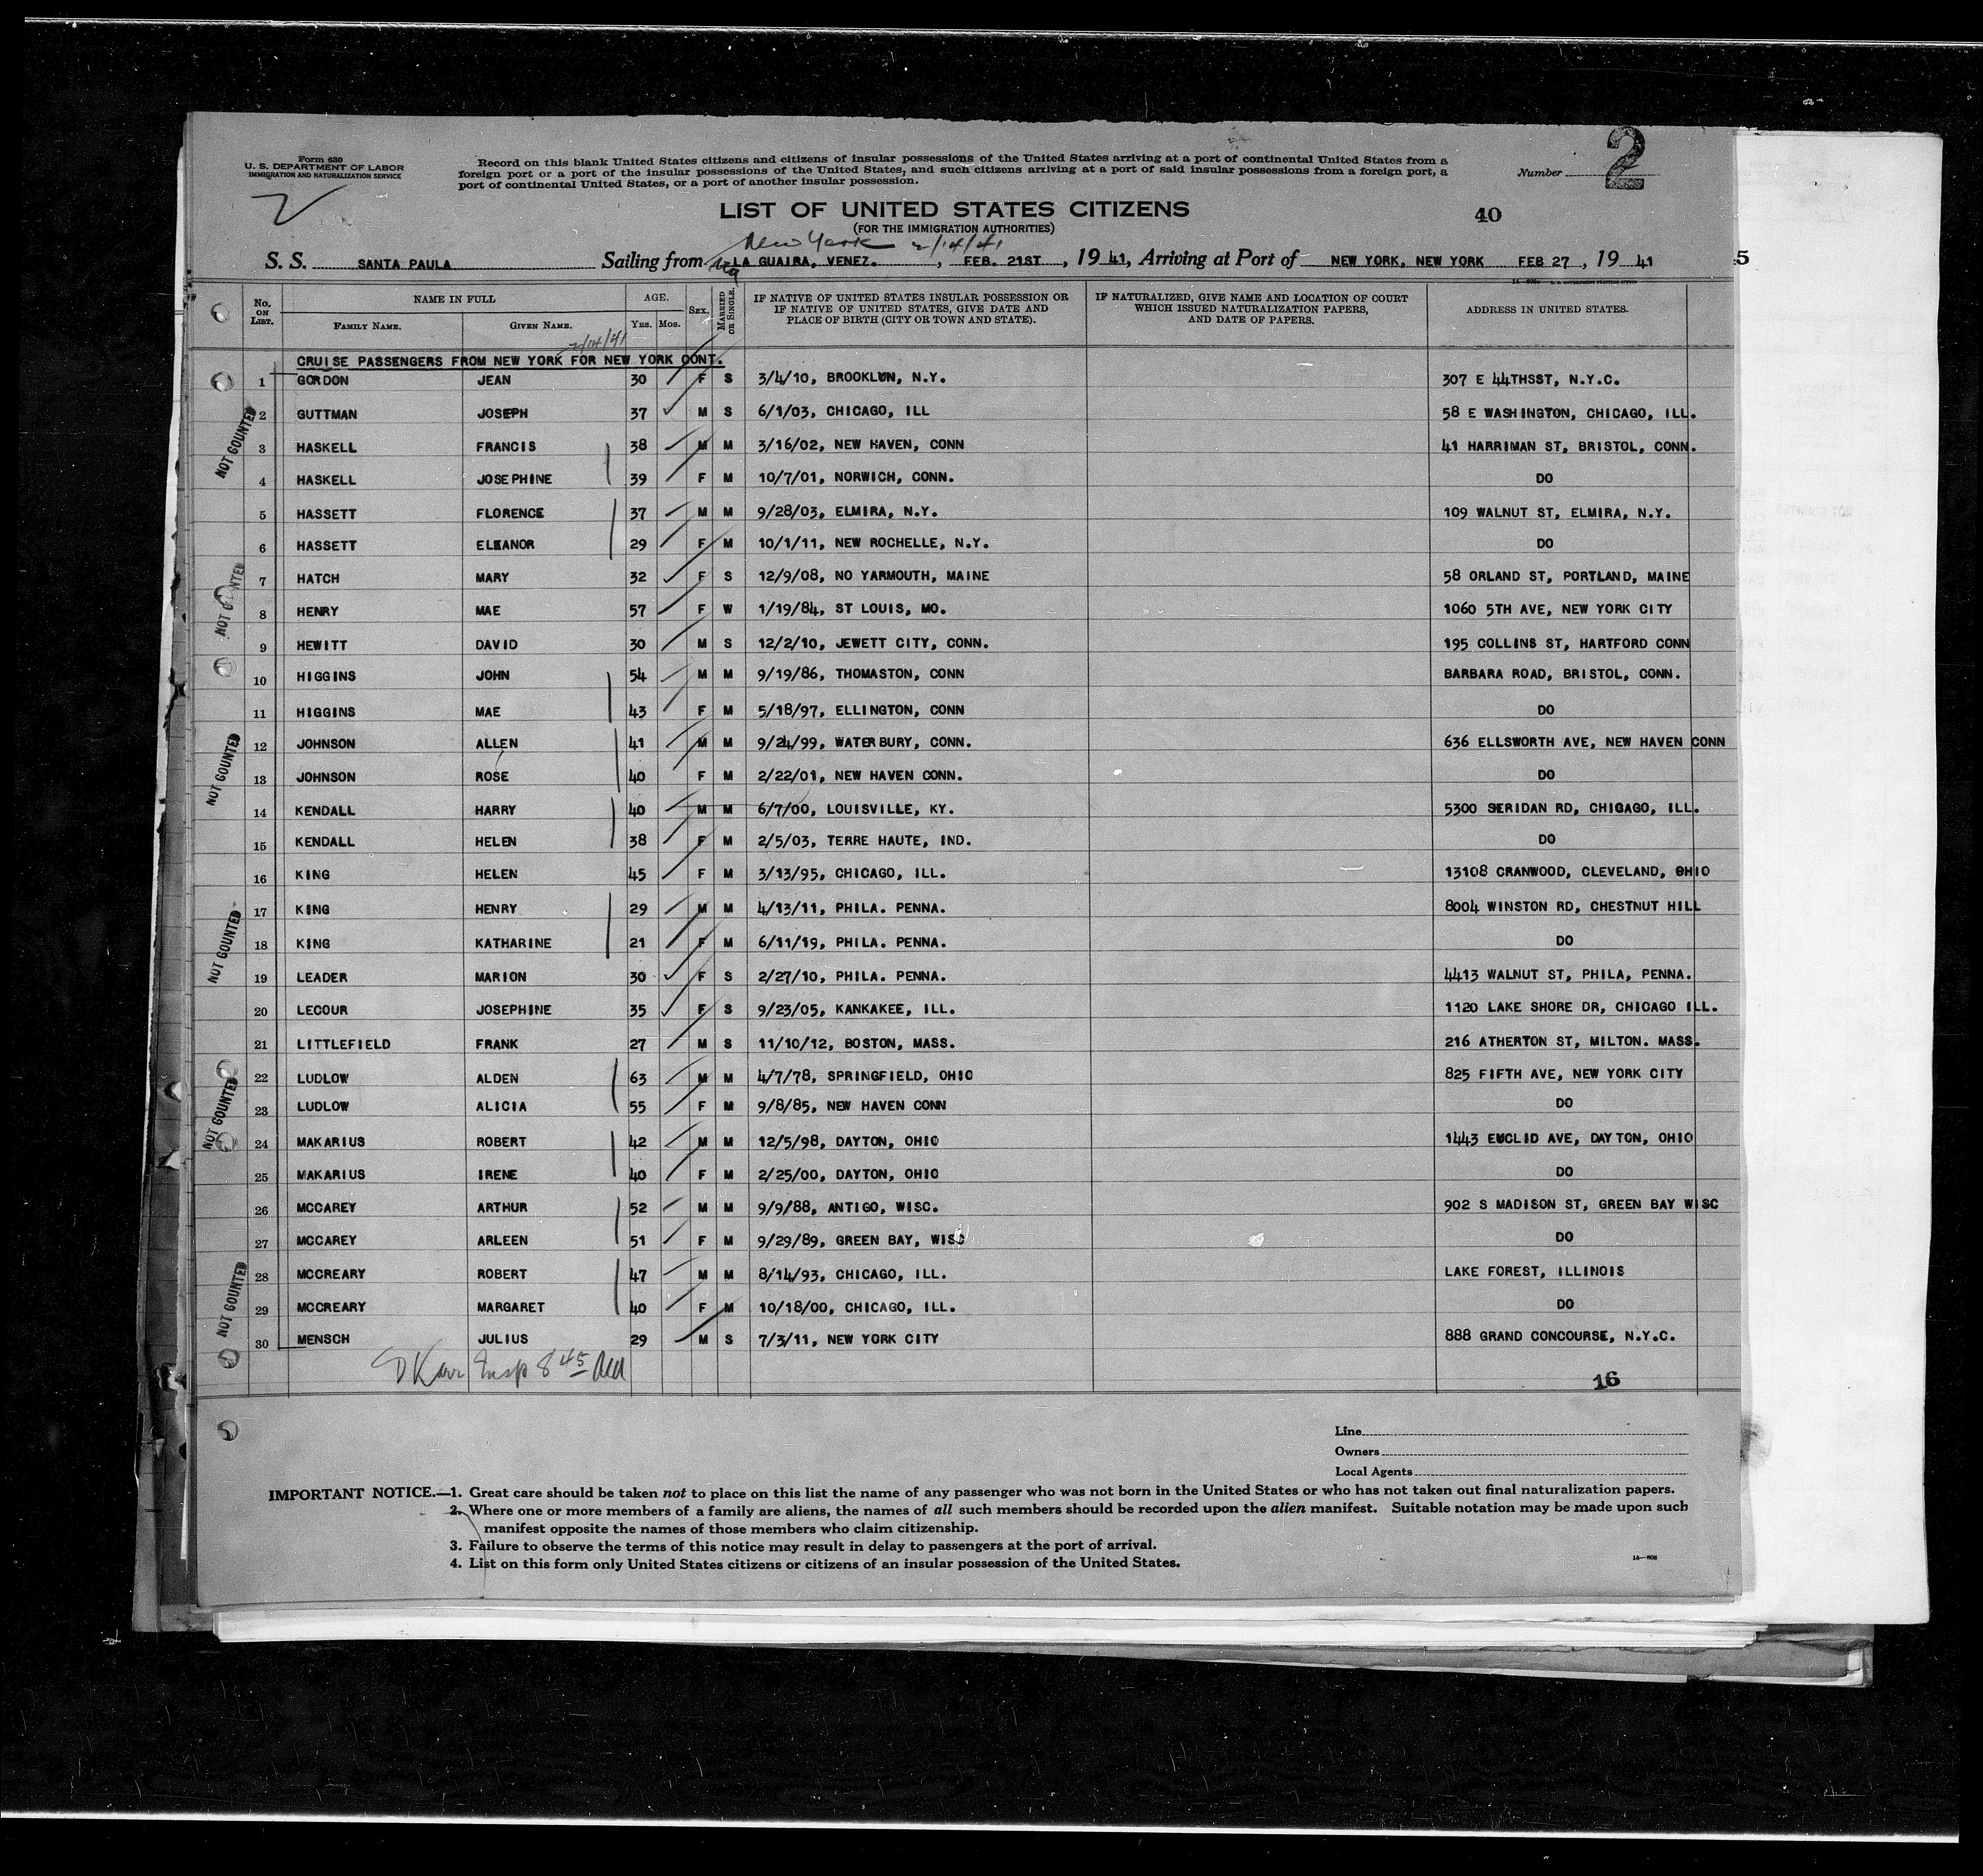 Form 630
U. S. DEPARTMENT OF LABOR
IMMIGRATION AND NATURALIZATION SERVICE
Record on this blank United States citizens and citizens of insular possessions of the United States arriving at a port of continental United States from a
foreign port or a port of the insular possessions of the United States, and such citizens arriving at a port of said insular possessions from a foreign port, a
port of continental United States, or a port of another insular possession.
Number 2
LIST OF UNITED STATES CITIZENS
40
(FOR THE IMMIGRATION AUTHORITIES)
New York 2/14/41
S. S. SANTA PAULA Sailing from via LA GUAIRA, VENEZ. , FEB. 21ST , 19 41, Arriving at Port of NEW YORK, NEW YORK FEB 27 , 19 41
5
No. ON LIST. NAME IN FULL FAMILY NAME. GIVEN NAME. AGE. YRS. MOS. SEX. MARRIED OR SINGLE. IF NATIVE OF UNITED STATES INSULAR POSSESSION OR IF NATIVE OF UNITED STATES, GIVE DATE AND PLACE OF BIRTH (CITY OR TOWN AND STATE). IF NATURALIZED, GIVE NAME AND LOCATION OF COURT WHICH ISSUED NATURALIZATION PAPERS, AND DATE OF PAPERS. ADDRESS IN UNITED STATES.
2/14/41
CRUISE PASSENGERS FROM NEW YORK FOR NEW YORK CONT.
1 GORDON JEAN 30 F S 3/4/10, BROOKLUN, N.Y. 307 E 44THSST, N.Y.C.
2 GUTTMAN JOSEPH 37 M S 6/1/03, CHICAGO, ILL 58 E WASHINGTON, CHICAGO, ILL.
NOT COUNTED
3 HASKELL FRANCIS 38 M M 3/16/02, NEW HAVEN, CONN 41 HARRIMAN ST, BRISTOL, CONN.
4 HASKELL JOSEPHINE 39 F M 10/7/01, NORWICH, CONN. DO
5 HASSETT FLORENCE 37 M M 9/28/03, ELMIRA, N.Y. 109 WALNUT ST, ELMIRA, N.Y.
6 HASSETT ELEANOR 29 F M 10/1/11, NEW ROCHELLE, N.Y. DO
7 HATCH MARY 32 F S 12/9/08, NO YARMOUTH, MAINE 58 ORLAND ST, PORTLAND, MAINE
NOT COUNTED
8 HENRY MAE 57 F W 1/19/84, ST LOUIS, MO. 1060 5TH AVE, NEW YORK CITY
9 HEWITT DAVID 30 M S 12/2/10, JEWETT CITY, CONN. 195 COLLINS ST, HARTFORD CONN
10 HIGGINS JOHN 54 M M 9/19/86, THOMASTON, CONN BARBARA ROAD, BRISTOL, CONN.
11 HIGGINS MAE 43 F M 5/18/97, ELLINGTON, CONN DO
12 JOHNSON ALLEN 41 M M 9/24/99, WATERBURY, CONN. 636 ELLSWORTH AVE, NEW HAVEN CONN
NOT COUNTED
13 JOHNSON ROSE 40 F M 2/22/01, NEW HAVEN CONN. DO
14 KENDALL HARRY 40 M M 6/7/00, LOUISVILLE, KY. 5300 SERIDAN RD, CHIGAGO, ILL.
15 KENDALL HELEN 38 F M 2/5/03, TERRE HAUTE, IND. DO
16 KING HELEN 45 F M 3/13/95, CHICAGO, ILL. 13108 CRANWOOD, CLEVELAND, OHIO
17 KING HENRY 29 M M 4/13/11, PHILA. PENNA. 8004 WINSTON RD, CHESTNUT HILL
NOT COUNTED
18 KING KATHARINE 21 F M 6/11/19, PHILA. PENNA. DO
19 LEADER MARION 30 F S 2/27/10, PHILA. PENNA. 4413 WALNUT ST, PHILA, PENNA.
20 LECOUR JOSEPHINE 35 F S 9/23/05, KANKAKEE, ILL. 1120 LAKE SHORE DR, CHICAGO ILL.
21 LITTLEFIELD FRANK 27 M S 11/10/12, BOSTON, MASS. 216 ATHERTON ST, MILTON. MASS.
22 LUDLOW ALDEN 63 M M 4/7/78, SPRINGFIELD, OHIO 825 FIFTH AVE, NEW YORK CITY
NOT COUNTED
23 LUDLOW ALICIA 55 F M 9/8/85, NEW HAVEN CONN DO
24 MAKARIUS ROBERT 42 M M 12/5/98, DAYTON, OHIO 1443 EUCLID AVE, DAYTON, OHIO
25 MAKARIUS IRENE 40 F M 2/25/00, DAYTON, OHIO DO
26 MCCAREY ARTHUR 52 M M 9/9/88, ANTIGO, WISC. 902 S MADISON ST, GREEN BAY WISC
27 MCCAREY ARLEEN 51 F M 9/29/89, GREEN BAY, WISC DO
28 MCCREARY ROBERT 47 M M 8/14/93, CHICAGO, ILL. LAKE FOREST, ILLINOIS
NOT COUNTED
29 MCCREARY MARGARET 40 F M 10/18/00, CHICAGO, ILL. DO
30 MENSCH JULIUS 29 M S 7/3/11, NEW YORK CITY 888 GRAND CONCOURSE, N.Y.C.
Insp 8 45
16
Line
Owners
Local Agents
IMPORTANT NOTICE.—1. Great care should be taken not to place on this list the name of any passenger who was not born in the United States or who has not taken out final naturalization papers.
2. Where one or more members of a family are aliens, the names of all such members should be recorded upon the alien manifest. Suitable notation may be made upon such
manifest opposite the names of those members who claim citizenship.
3. Failure to observe the terms of this notice may result in delay to passengers at the port of arrival.
4. List on this form only United States citizens or citizens of an insular possession of the United States.